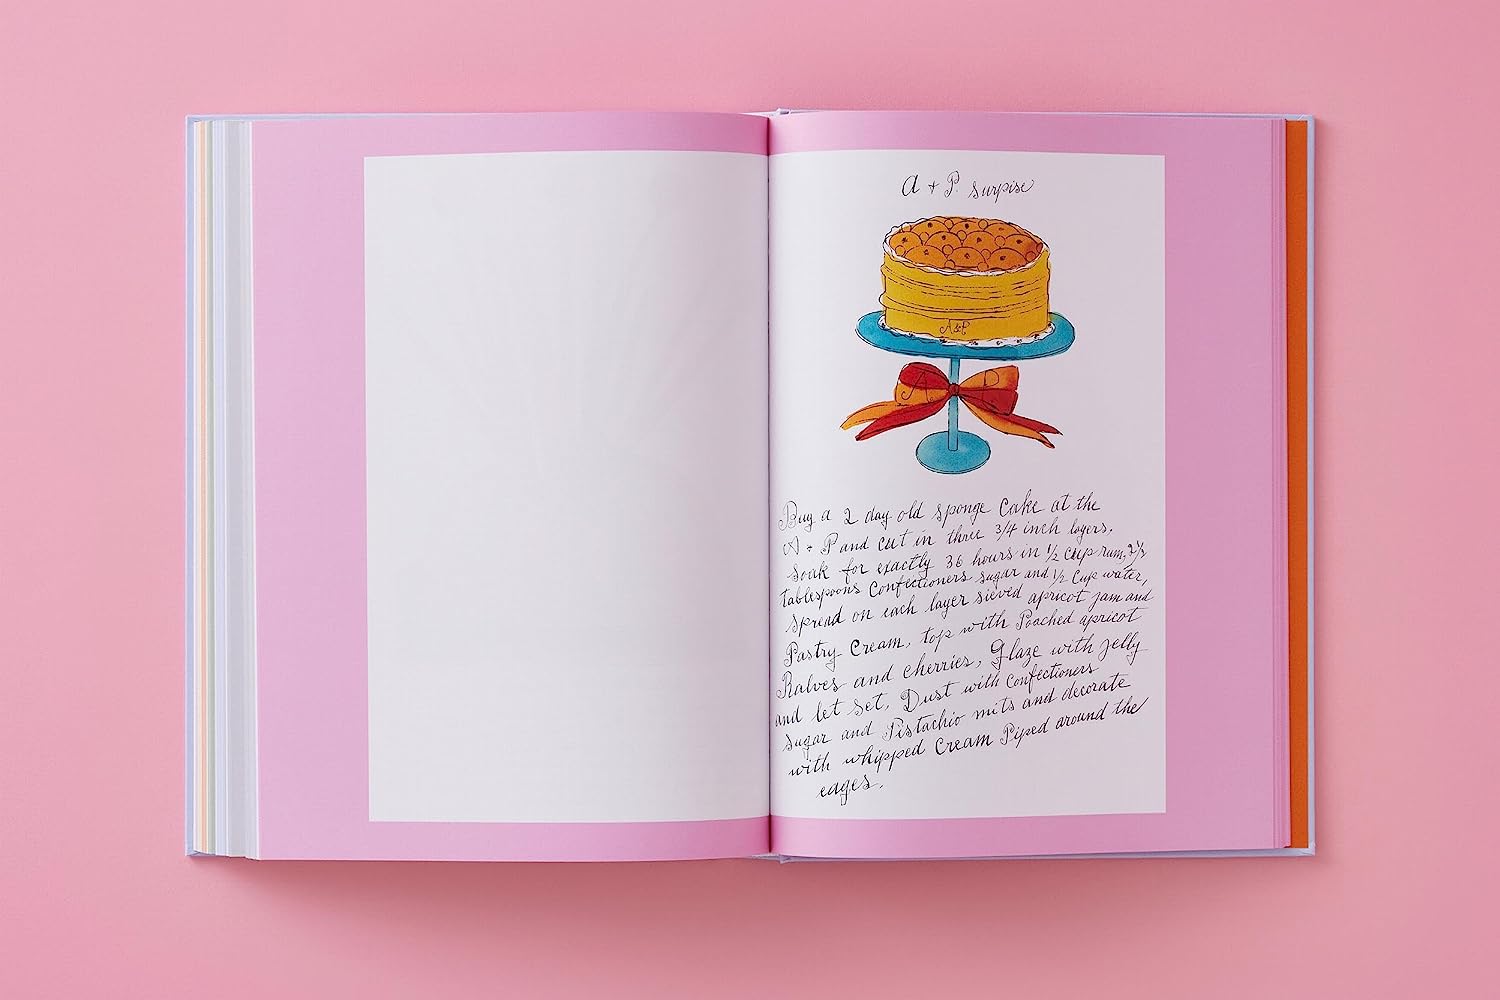 A + P. surpise
A&P
A P
Buy a 2 day old sponge Cake at the
A + P and cut in three 3/4 inch layers,
soak for exactly 36 hours in 1/2 cup rum, 2 1/2
tablespoons Confectioners sugar and 1/2 cup water,
spread on each layer sieved apricot jam and
Pastry Cream, top with Poached apricot
Halves and cherries, Glaze with jelly
and let set, Dust with Confectioners
sugar and Pistachio nuts and decorate
with whipped Cream Piped around the
edges.